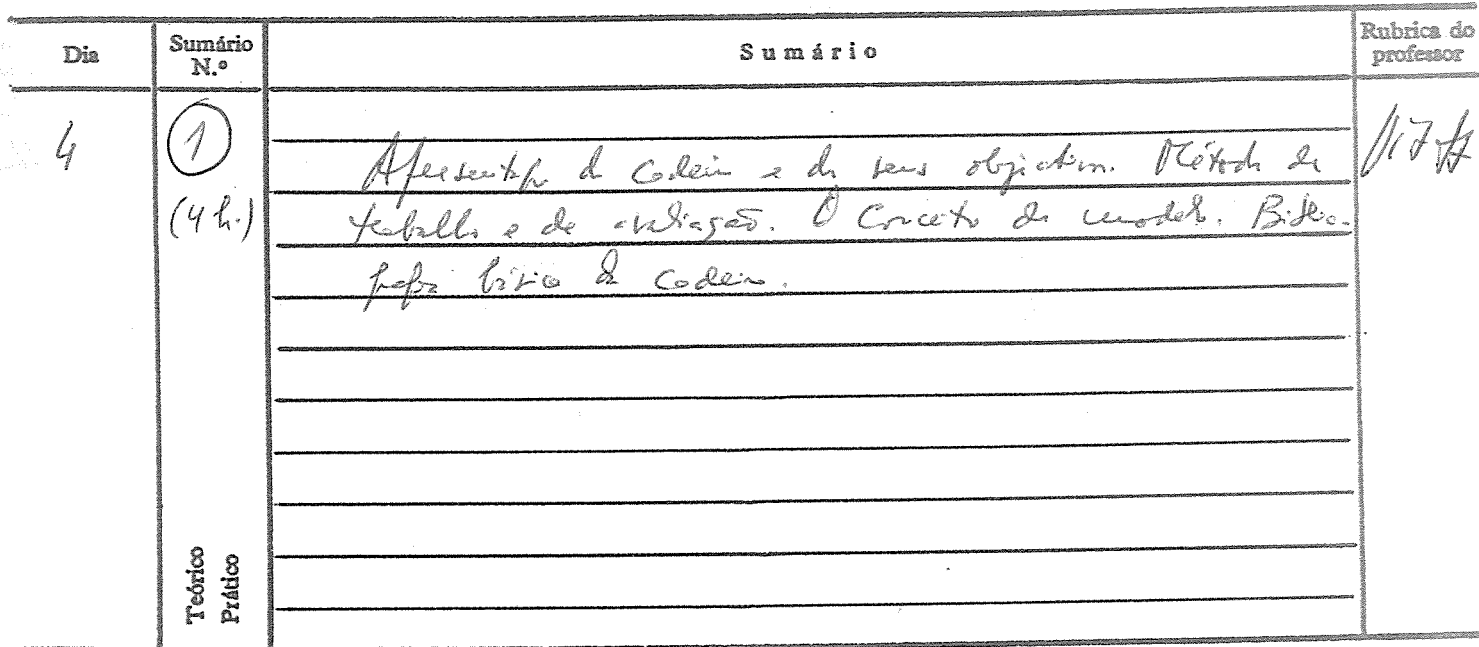 Dia
Sumário N.º
Sumário
Rubrica do professor
4
1
(4 h.)
Apresentação da Cadeira e de seus objectivos. Método de
trabalho e de avaliação. O Conceito de modelo. Biblio-
grafia básica da Cadeira.
Teórico
Prático